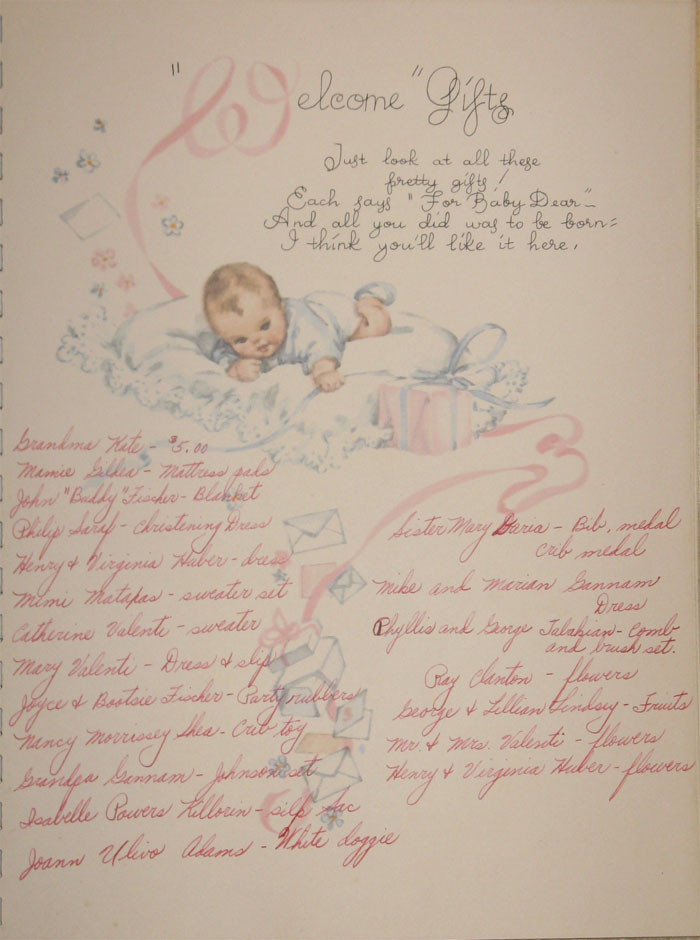 "Welcome" Gifts
Just look at all these
pretty gifts!
Each says "For Baby Dear"—
And all you did was to be born—
I think you'll like it here.
Grandma Kate - $5.00
Mamie Gildea - Mattress pads
John "Buddy" Fischer - Blanket
Philip Saraf - Christening Dress
Henry & Virginia Huber - dress
Mimi Matapas - sweater set
Catherine Valenti - sweater
Mary Valenti - Dress & slip
Joyce & Bootsie Fischer - Party rubbers
Nancy Morrissey Shea - Crib toy
Grandpa Gannam - Johnson set
Isabelle Powers Killorin - silp sac
Joann Ulivo Adams - White doggie
Sister Mary Daria - Bib, medal
crib medal
Mike and Marian Gannam
Dress
Phyllis and George Talakian - Comb
and brush set.
Ray Clanton - flowers
George & Lillian Lindsey - Fruits
Mr. & Mrs. Valenti - flowers
Henry & Virginia Huber - flowers